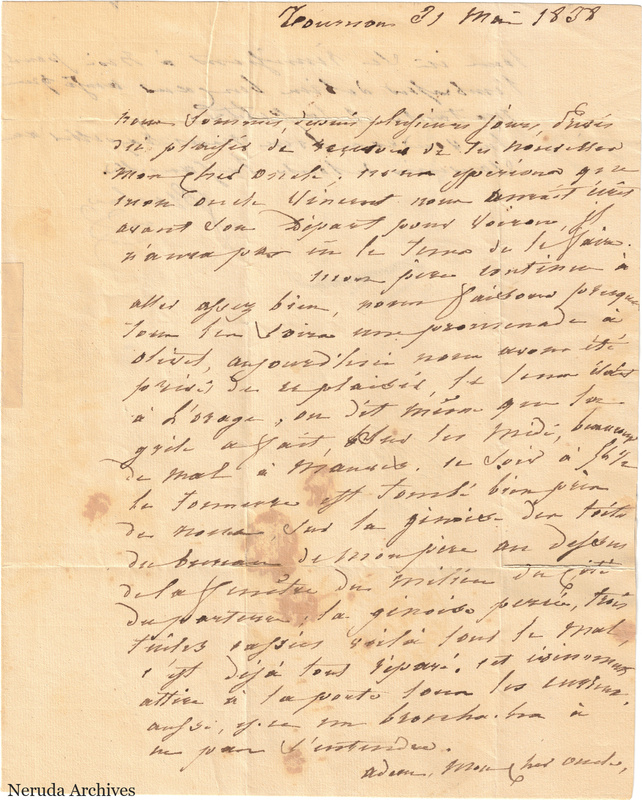 Tournon 31 Mai 1838
nous sommes, depuis plusieurs jours, privés
du plaisir de recevoir de tes nouvelles
mon cher oncle. nous esperions que
mon oncle Vincent nous
avant son Départ pour Voiron, il
n'aura pas eu le tems de le faire.
mon père continue à
aller assez bien, nous faisons presque
tous les soirs une promenade à
olivet, aujourd'hui nous avons été
privés de ce plaisir, le tems étant
à l'orage, on dit même que la
grêle a fait, sur les midi, beaucoup
de mal à Mauves. ce soir à 5h 1/2
le tonnerre est tombé bien près
de nous sur la génoise des toits
du bureau de mon père au dessus
de la fenêtre du milieu du côté
du parterre, la génoise percée, trois
tuiles cassées voilà tout le mal,
c'est déjà tout réparé. cet évènement
attire à la porte tous les curieux,
aussi, y a un brouhaha à
ne pas s'entendre.
adieu, mon cher oncle,
Neruda Archives